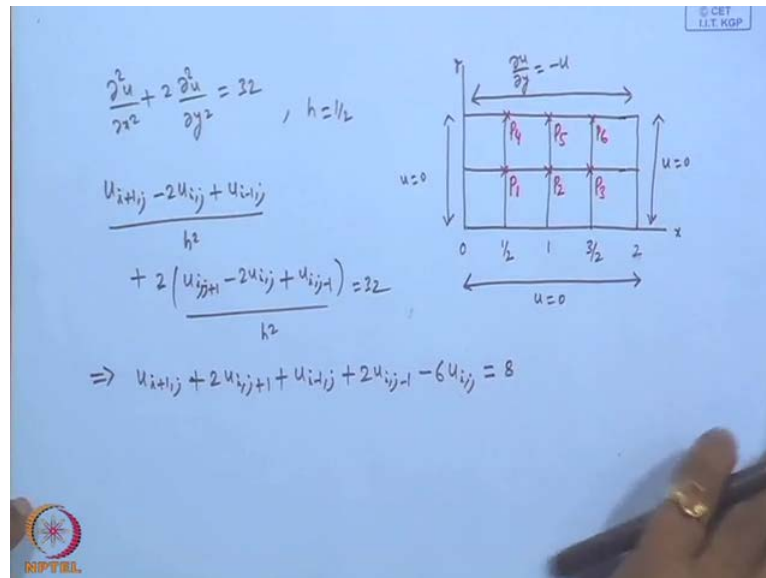 © CET
I.I.T. KGP
∂²u/∂x² + 2 ∂²u/∂y² = 32 , h = 1/2
(u_{i+1,j} - 2u_{i,j} + u_{i-1,j})/h²
+ 2 ((u_{i,j+1} - 2u_{i,j} + u_{i,j-1})/h²) = 32
⇒ u_{i+1,j} + 2u_{i,j+1} + u_{i-1,j} + 2u_{i,j-1} - 6u_{i,j} = 8
Y
∂u/∂y = -u
P4 P5 P6
u=0
u=0
P1 P2 P3
x
0 1/2 1 3/2 2
u=0
NPTEL